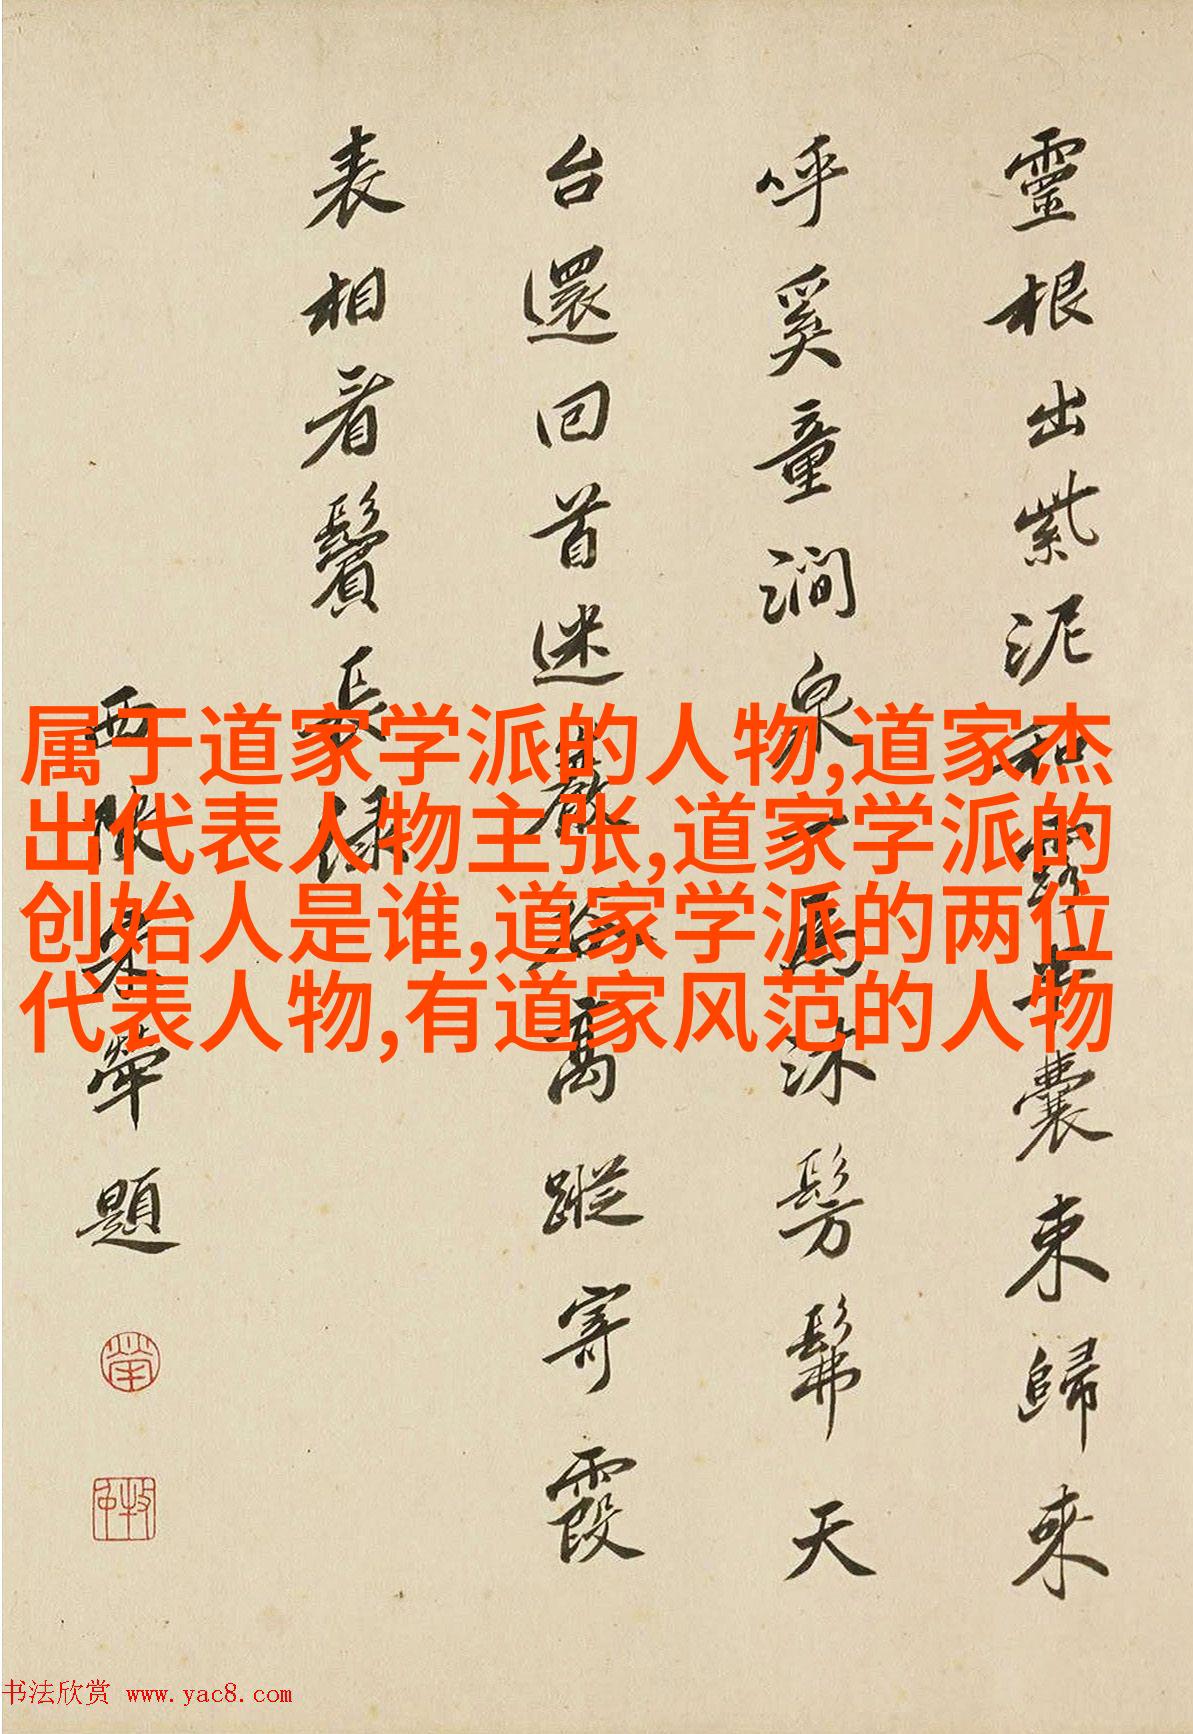 靈根出紫泥和露半囊束歸來
呼奚童澗泉一為沐髣髴天
台還回首迷巖谷高蹤寄霞
表相看鬢長綠
西陂宋犖題
犖
牧仲
属于道家学派的人物,道家杰
出代表人物主张,道家学派的
创始人是谁,道家学派的两位
代表人物,有道家风范的人物
书法欣赏 www.yac8.com